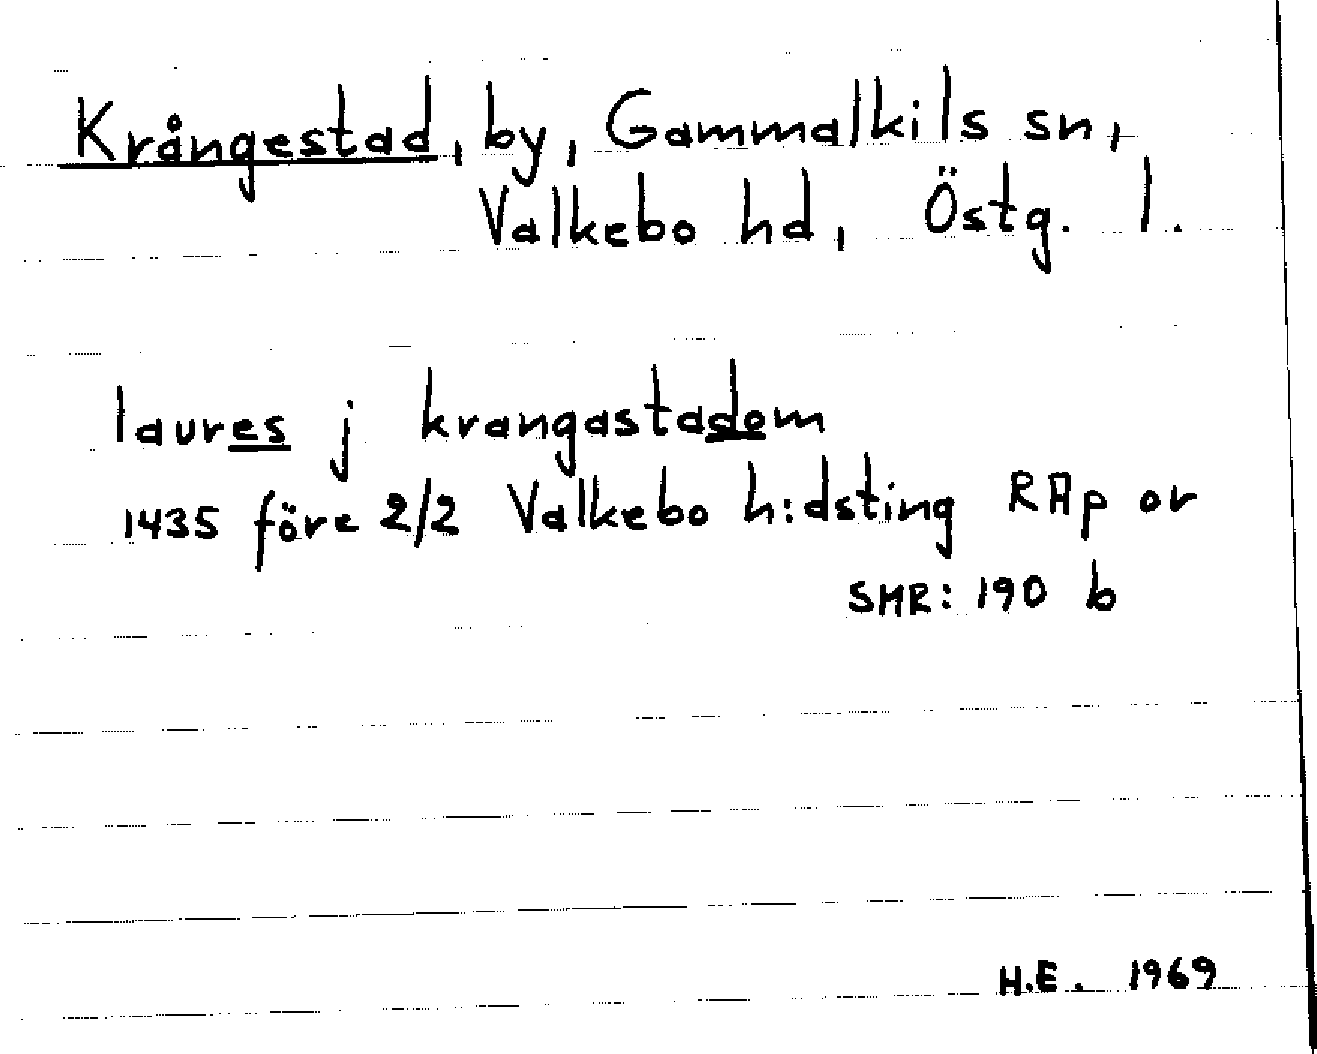 Krångestad, by, Gammalkils sn,
Valkebo hd, Östg. l.
laures j krangastadom
1435 före 2/2 Valkebo h:dsting RAp or
SMR: 190 b
H.E. 1969